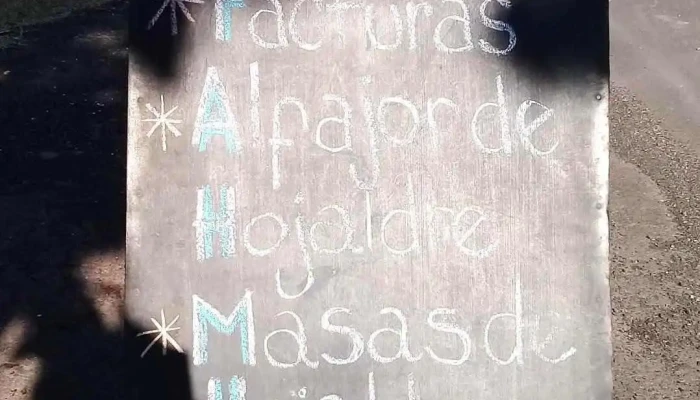 * Facturas
* Alfajor de
Hojaldre
* Masas de